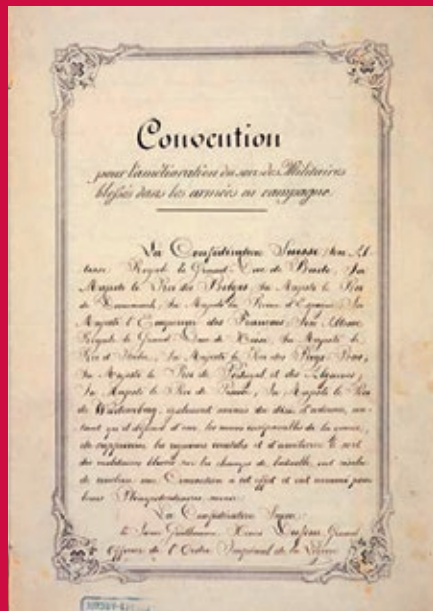 Convention
pour l'amélioration du sort des Militaires
blessés dans les armées en campagne
La Confédération Suisse, Son Al-
tesse Royale le Grand-Duc de Bade, Sa
Majesté le Roi des Belges, Sa Majesté le Roi
de Danemark, Sa Majesté la Reine d'Espagne, Sa
Majesté l'Empereur des Français, Son Altesse
Royale le Grand Duc de Hesse, Sa Majesté le
Roi d'Italie, Sa Majesté le Roi des Pays-Bas,
Sa Majesté le Roi de Portugal et des Algarves,
Sa Majesté le Roi de Prusse, Sa Majesté le Roi
de Wurtemberg, également animés du désir d'adoucir, au-
tant qu'il dépend d'eux, les maux inséparables de la guerre,
de supprimer les rigueurs inutiles et d'améliorer le sort
des militaires blessés sur les champs de bataille, ont résolu
de conclure une Convention à cet effet et ont nommé pour
leurs Plénipotentiaires, savoir:
La Confédération Suisse
le Sieur Guillaume Henri Dufour, Grand
Officier de l'Ordre Impérial de la Légion